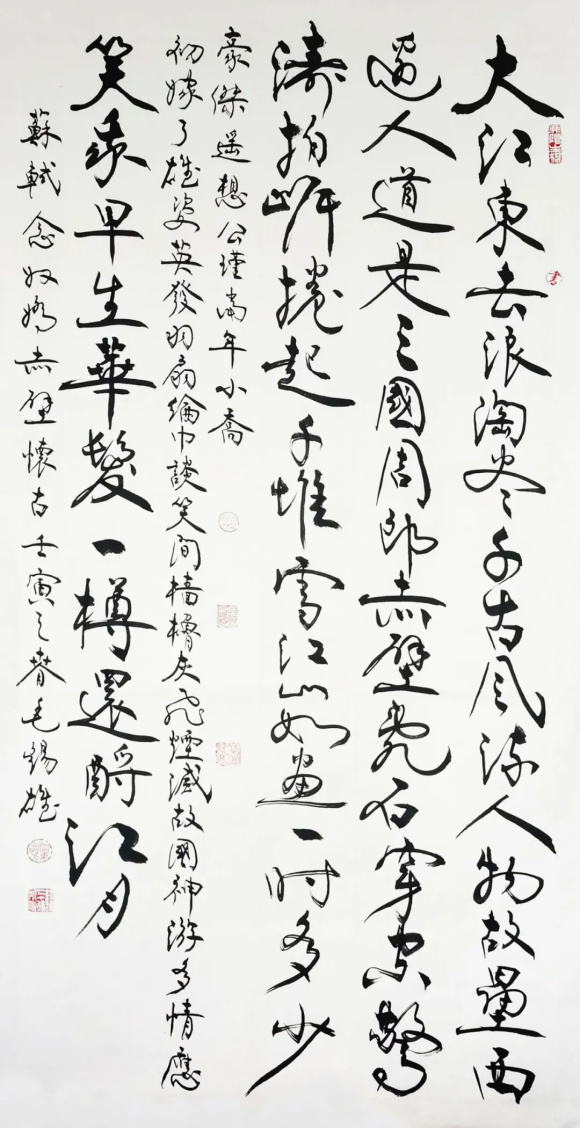 大江東去浪淘尽千古風流人物故壘西
邊人道是三國周郎赤壁亂石穿空驚
濤拍岸捲起千堆雪江山如畫一時多少
豪傑遥想公瑾當年小喬
初嫁了雄姿英發羽扇綸巾談笑間檣櫓灰飛煙滅故國神游多情應
笑我早生華髮一樽還酹江月
蘇軾念奴嬌赤壁懷古壬寅之春毛錫雄